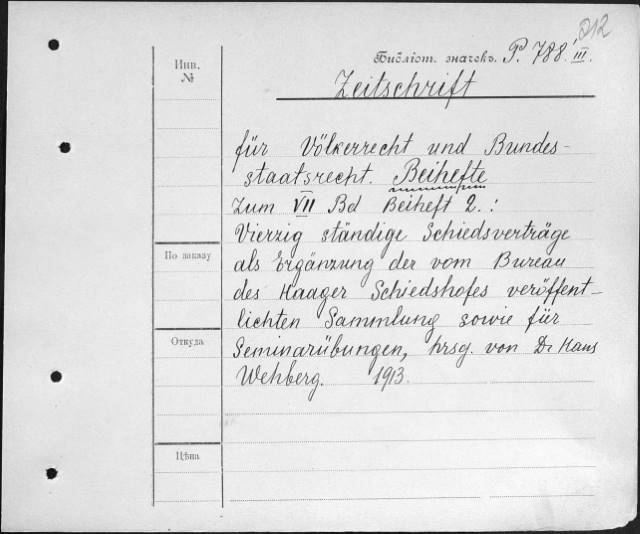 212
Инв.
№
Библіот. значекъ. P. 788. III.
Zeitschrift
für Völkerrecht und Bundes-
staatsrecht. Beihefte
Zum VII Bd Beiheft 2.:
Vierzig ständige Schiedsverträge
По заказу
als Ergänzung der vom Bureau
des Haager Schiedshofes veröffent-
lichten Sammlung sowie für
Откуда
Seminarübungen, hrsg. von Dr Hans
Wehberg. 1913.
Цѣна